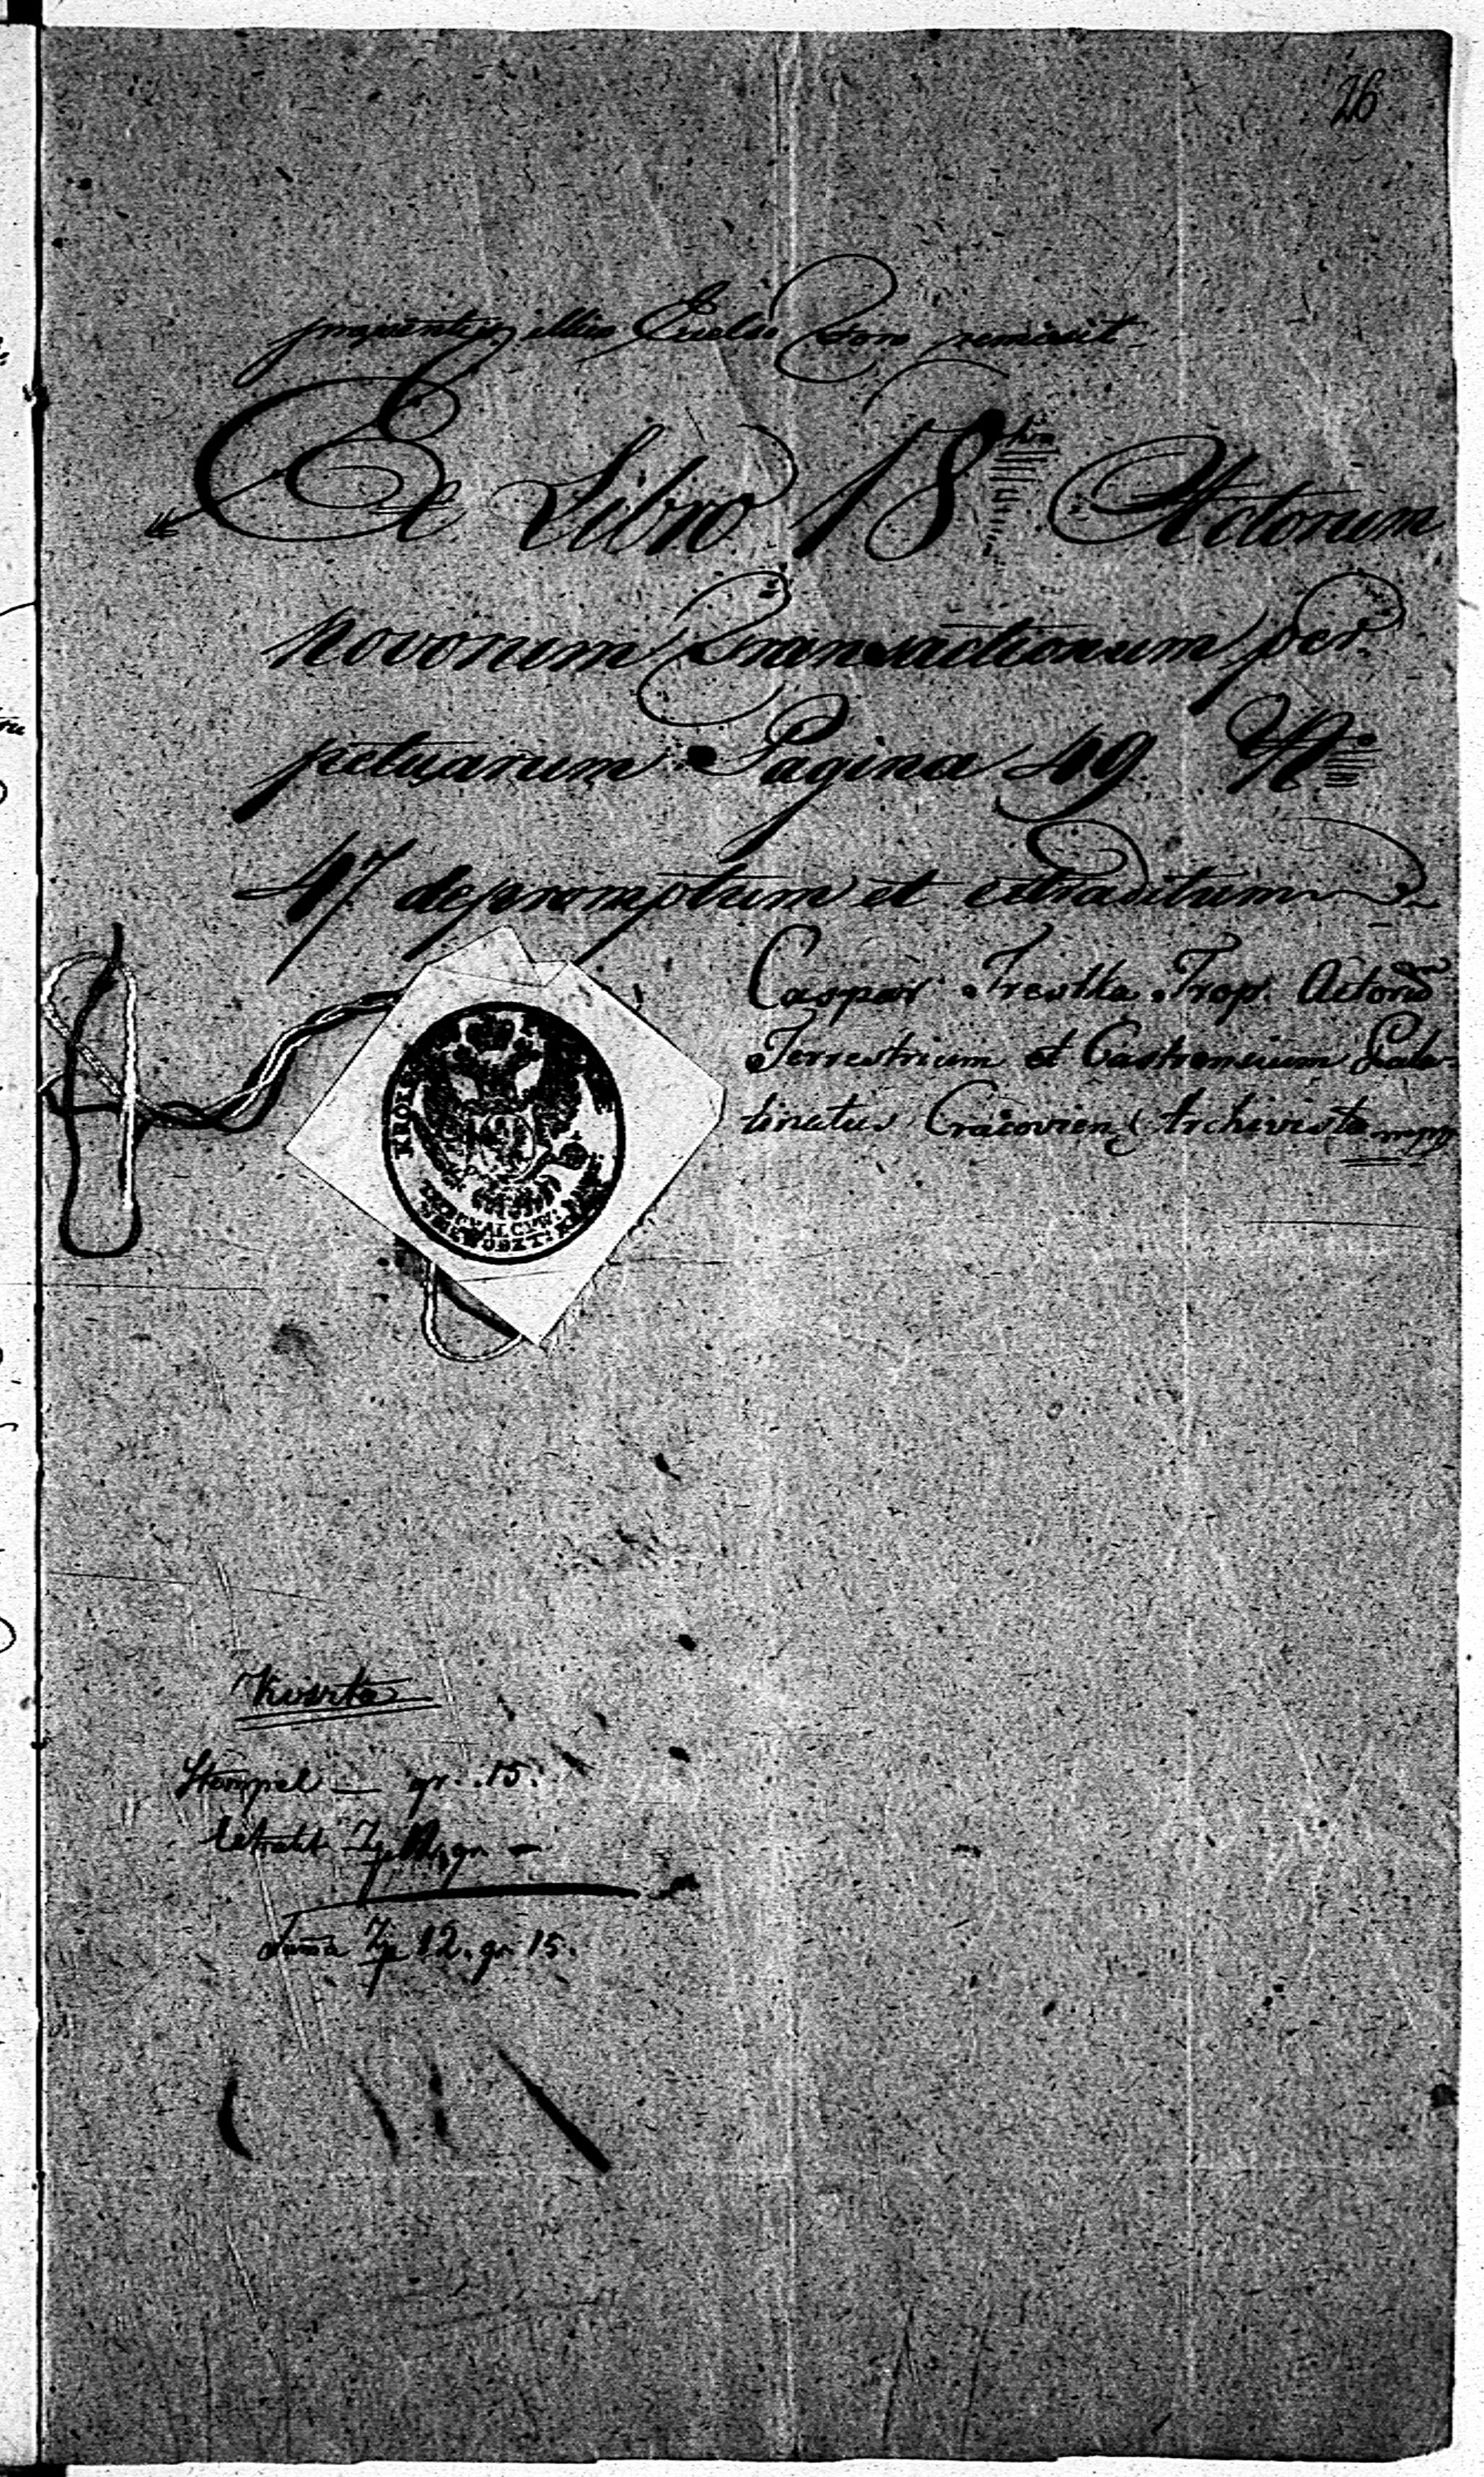 26
illius non remisit.
Ex Libro 18 Actorum
novorum Transactionum per
petuarum Pagina 49 No
47 depromptum et extraditum
Caspar Trop. Actorū
Terrestrium et Castrensium Pala-
tinatus Cracovien Archivista mpp
KRÓLES
Kwota
Stempel — gr. 15.
Extrakt Zp gr. —
Suma Zp 12. gr. 15.